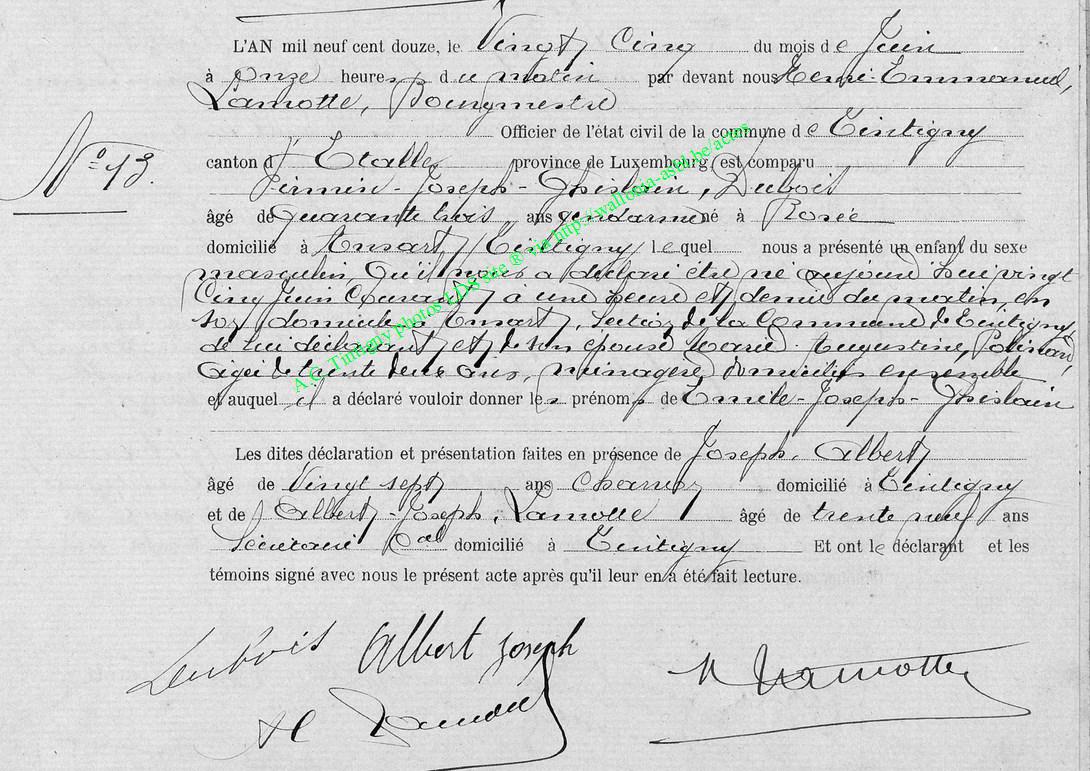 L'AN mil neuf cent douze, le Vingt Cinq du mois de Juin
à Onze heures du matin par devant nous Henri-Emmanuel,
Lamotte, Bourgmestre
Officier de l'état civil de la commune de Tintigny
N° 13.
canton d' Etalle province de Luxembourg, est comparu
Firmin-Joseph-Ghislain, Dubois
âgé de quarante trois ans gendarme né à Rosée
domicilié à Ansart / Tintigny / lequel nous a présenté un enfant du sexe
masculin, qu'il nous a déclaré être né aujourd'hui vingt
cinq Juin Courant, à une heure et demie du matin, en
son domicile à Ansart, section de la Commune de Tintigny
de lui déclarant et de son épouse Marie-Augustine,
âgée de trente deux ans, ménagère, domiciliés ensemble
et auquel il a déclaré vouloir donner les prénoms de Emile-Joseph-Ghislain
Les dites déclaration et présentation faites en présence de Joseph, Albert
âgé de Vingt sept ans charron domicilié à Tintigny
et de Albert-Joseph, Lamotte âgé de trente neuf ans
Secrétaire Cal domicilié à Tintigny Et ont le déclarant et les
témoins signé avec nous le présent acte après qu'il leur en a été fait lecture.
Dubois Albert Joseph
Lamotte
A Lamotte
A.C. Tintigny photos LDS site ® via http://wallonia-asbl.be/actes